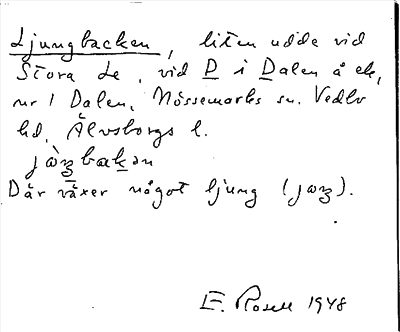 Ljungbacken, liten udde vid
Stora Le, vid D i Dalen å ek,
nr 1 Dalen, Nössemarks sn. Vedbo
hd, Älvsborgs l.
jàŋbakən
Där växer något ljung (jɷŋ).
E. Rosell 1948